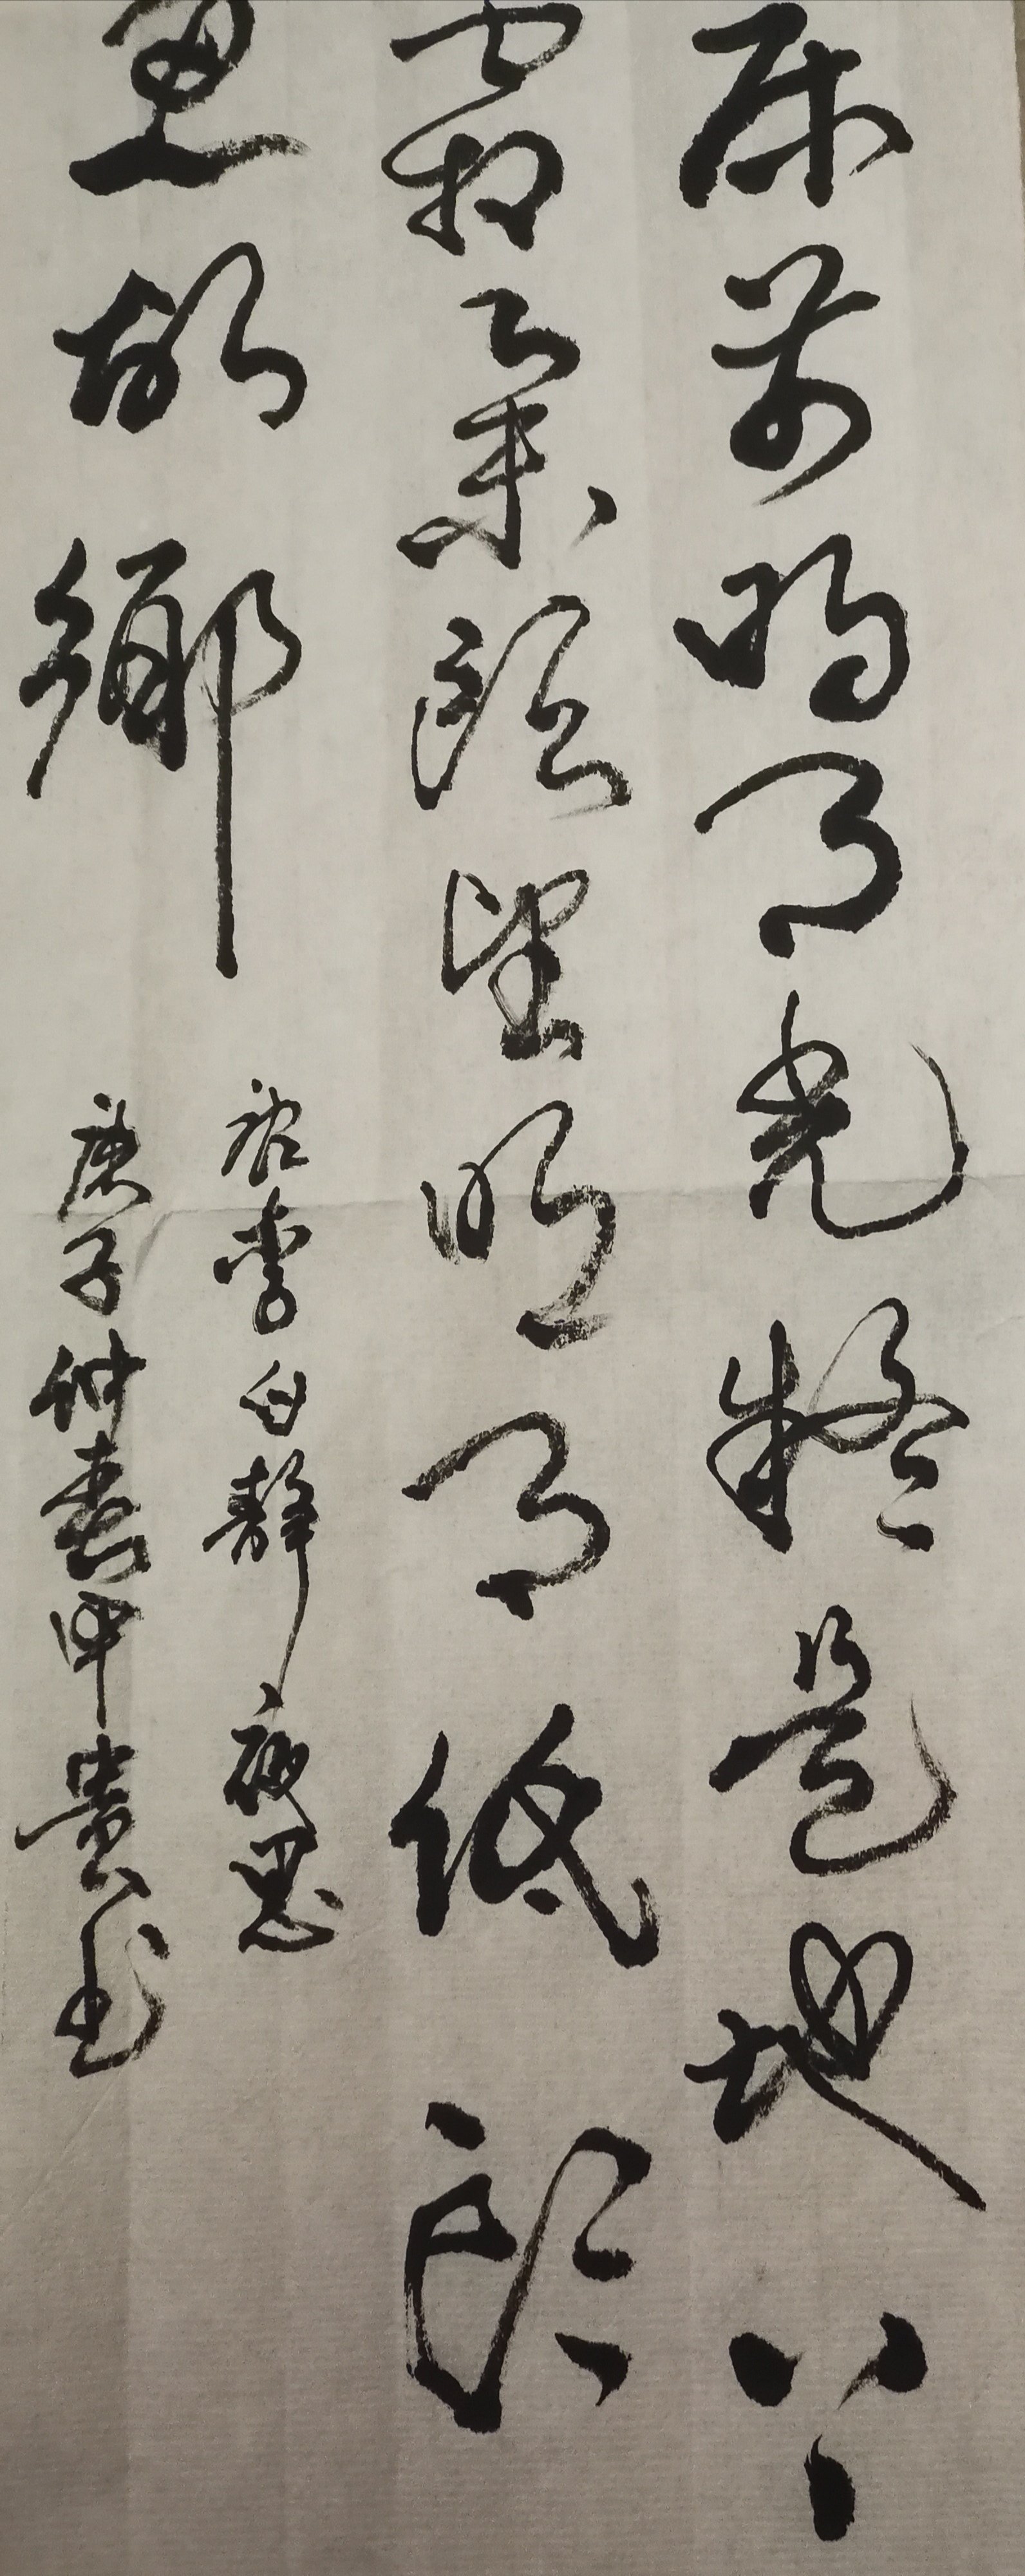 床前明月光疑是地上
霜舉頭望明月低頭
思故鄉
李白靜夜思
庚子仲春申貴書